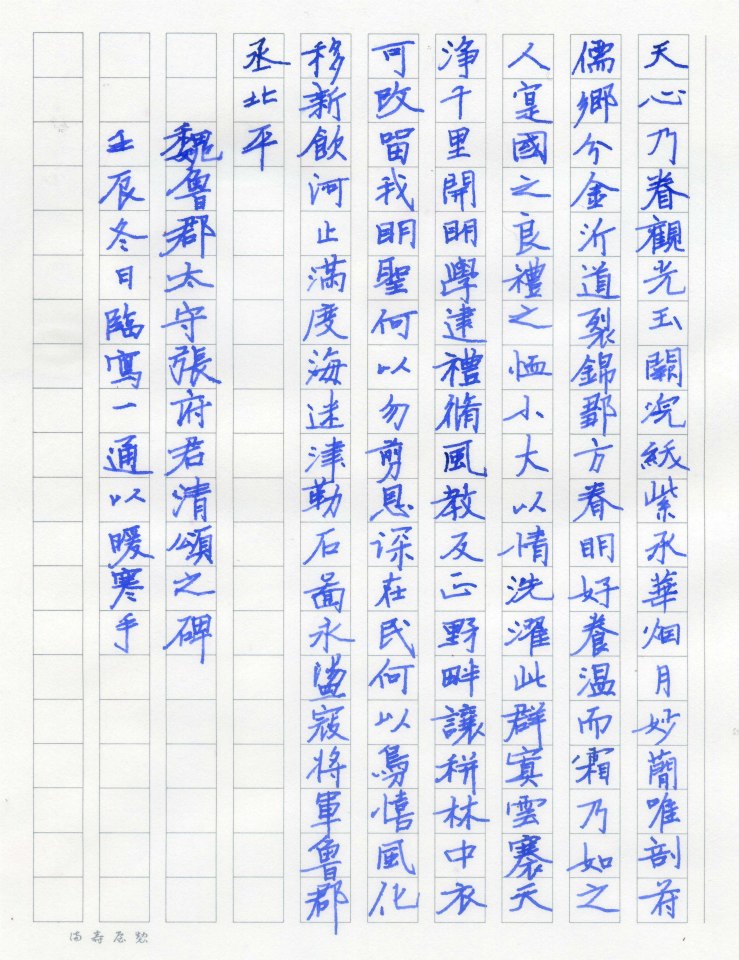 天心乃眷觀光玉闕浣紱紫承華烟月妙蕳唯剖苻
儒鄉分金沂道裂錦鄒方春明好養溫而霜乃如之
人寔國之良禮之恤小大以情洗濯此群寘雲褰天
淨千里開明學建禮脩風教反正野畔讓耕林中衣
可改留我明聖何以勿剪恩深在民何以鳥憘風化
移新飲河止滿度海迷津勒石啚永盪寇將軍魯郡
丞北平
魏魯郡太守張府君清頌之碑
壬辰冬日臨寫一通以暖寒手